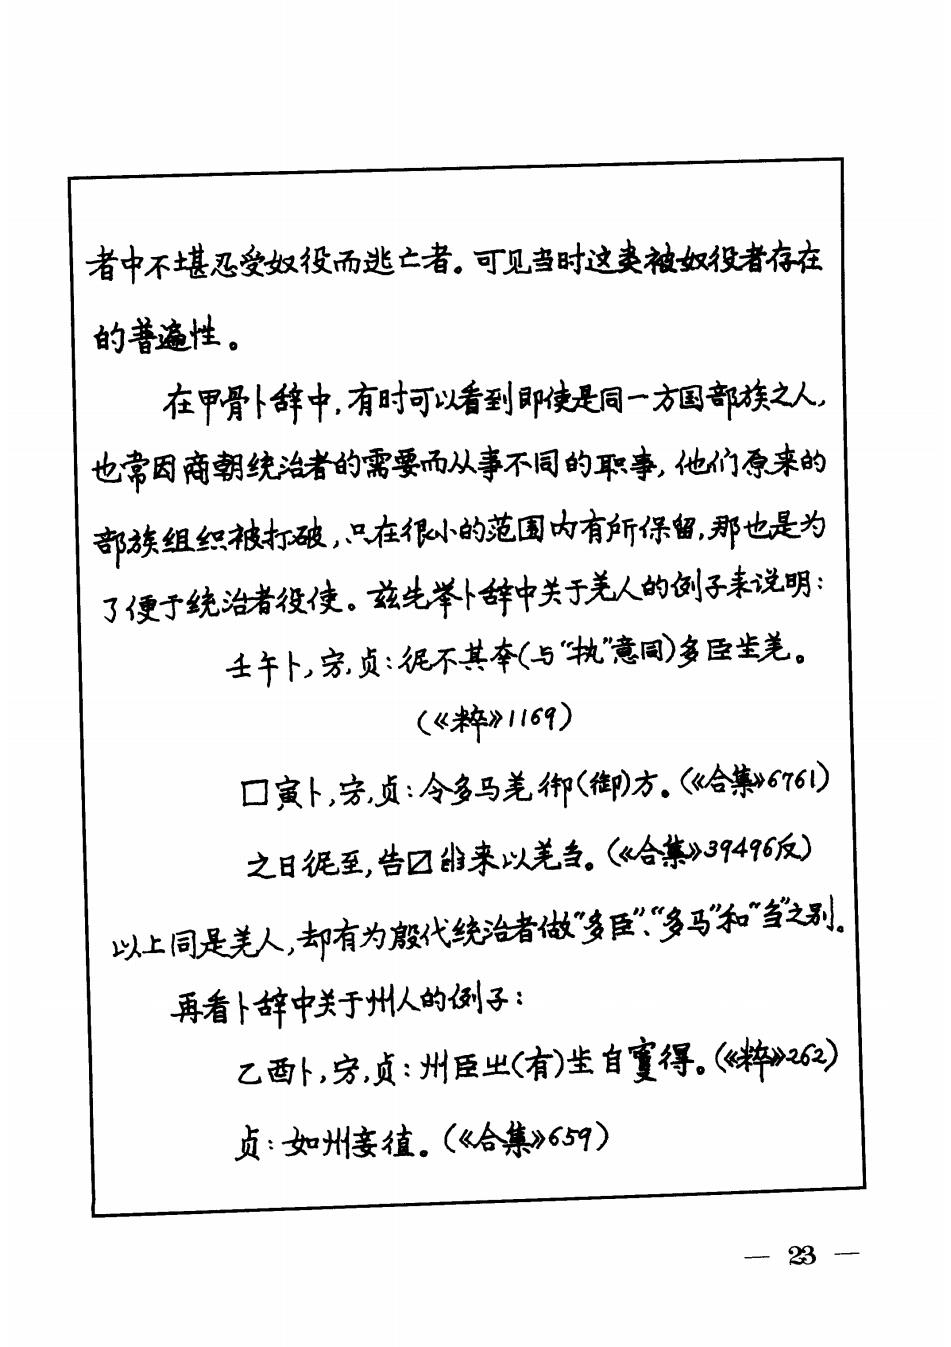 者中不堪忍受奴役而逃亡者。可见当时这类被奴役者存在
的普遍性。
在甲骨卜辞中,有时可以看到即使是同一方国部族之人,
也常因商朝统治者的需要而从事不同的职事,他们原来的
部族组织被打破,只在很小的范围内有所保留,那也是为
了便于统治者役使。兹先举卜辞中关于羌人的例子来说明:
壬午卜,㱿,贞:伲不其㚔(与“执”意同)多臣㞷羌。
(《粹》1169)
□寅卜,㱿,贞:令多马羌御(御)方。(《合集》6761)
之日伲至,告☑来以羌刍。(《合集》39496反)
以上同是羌人,却有为殷代统治者做“多臣”、“多马”和“刍”之别。
再看卜辞中关于州人的例子:
乙酉卜,宾,贞:州臣㞢(有)㞷自得。(《粹》262)
贞:如州妾值。(《合集》659)
— 23 —